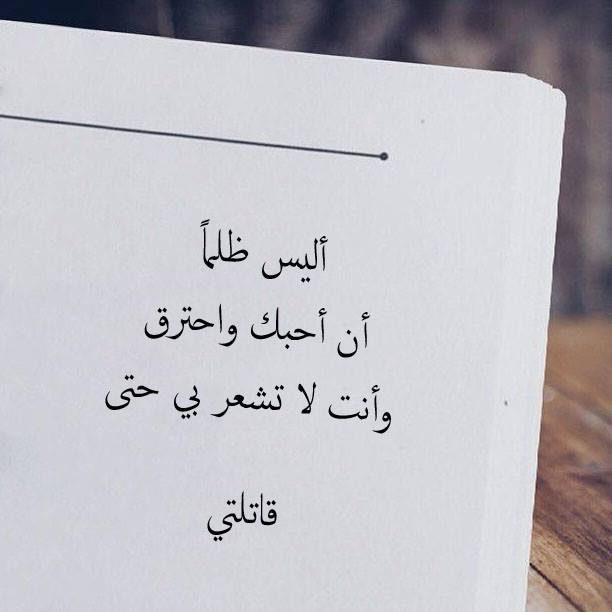 أليس ظلماً
أن أحبك واحترق
وأنت لا تشعر بي حتى
قاتلتي